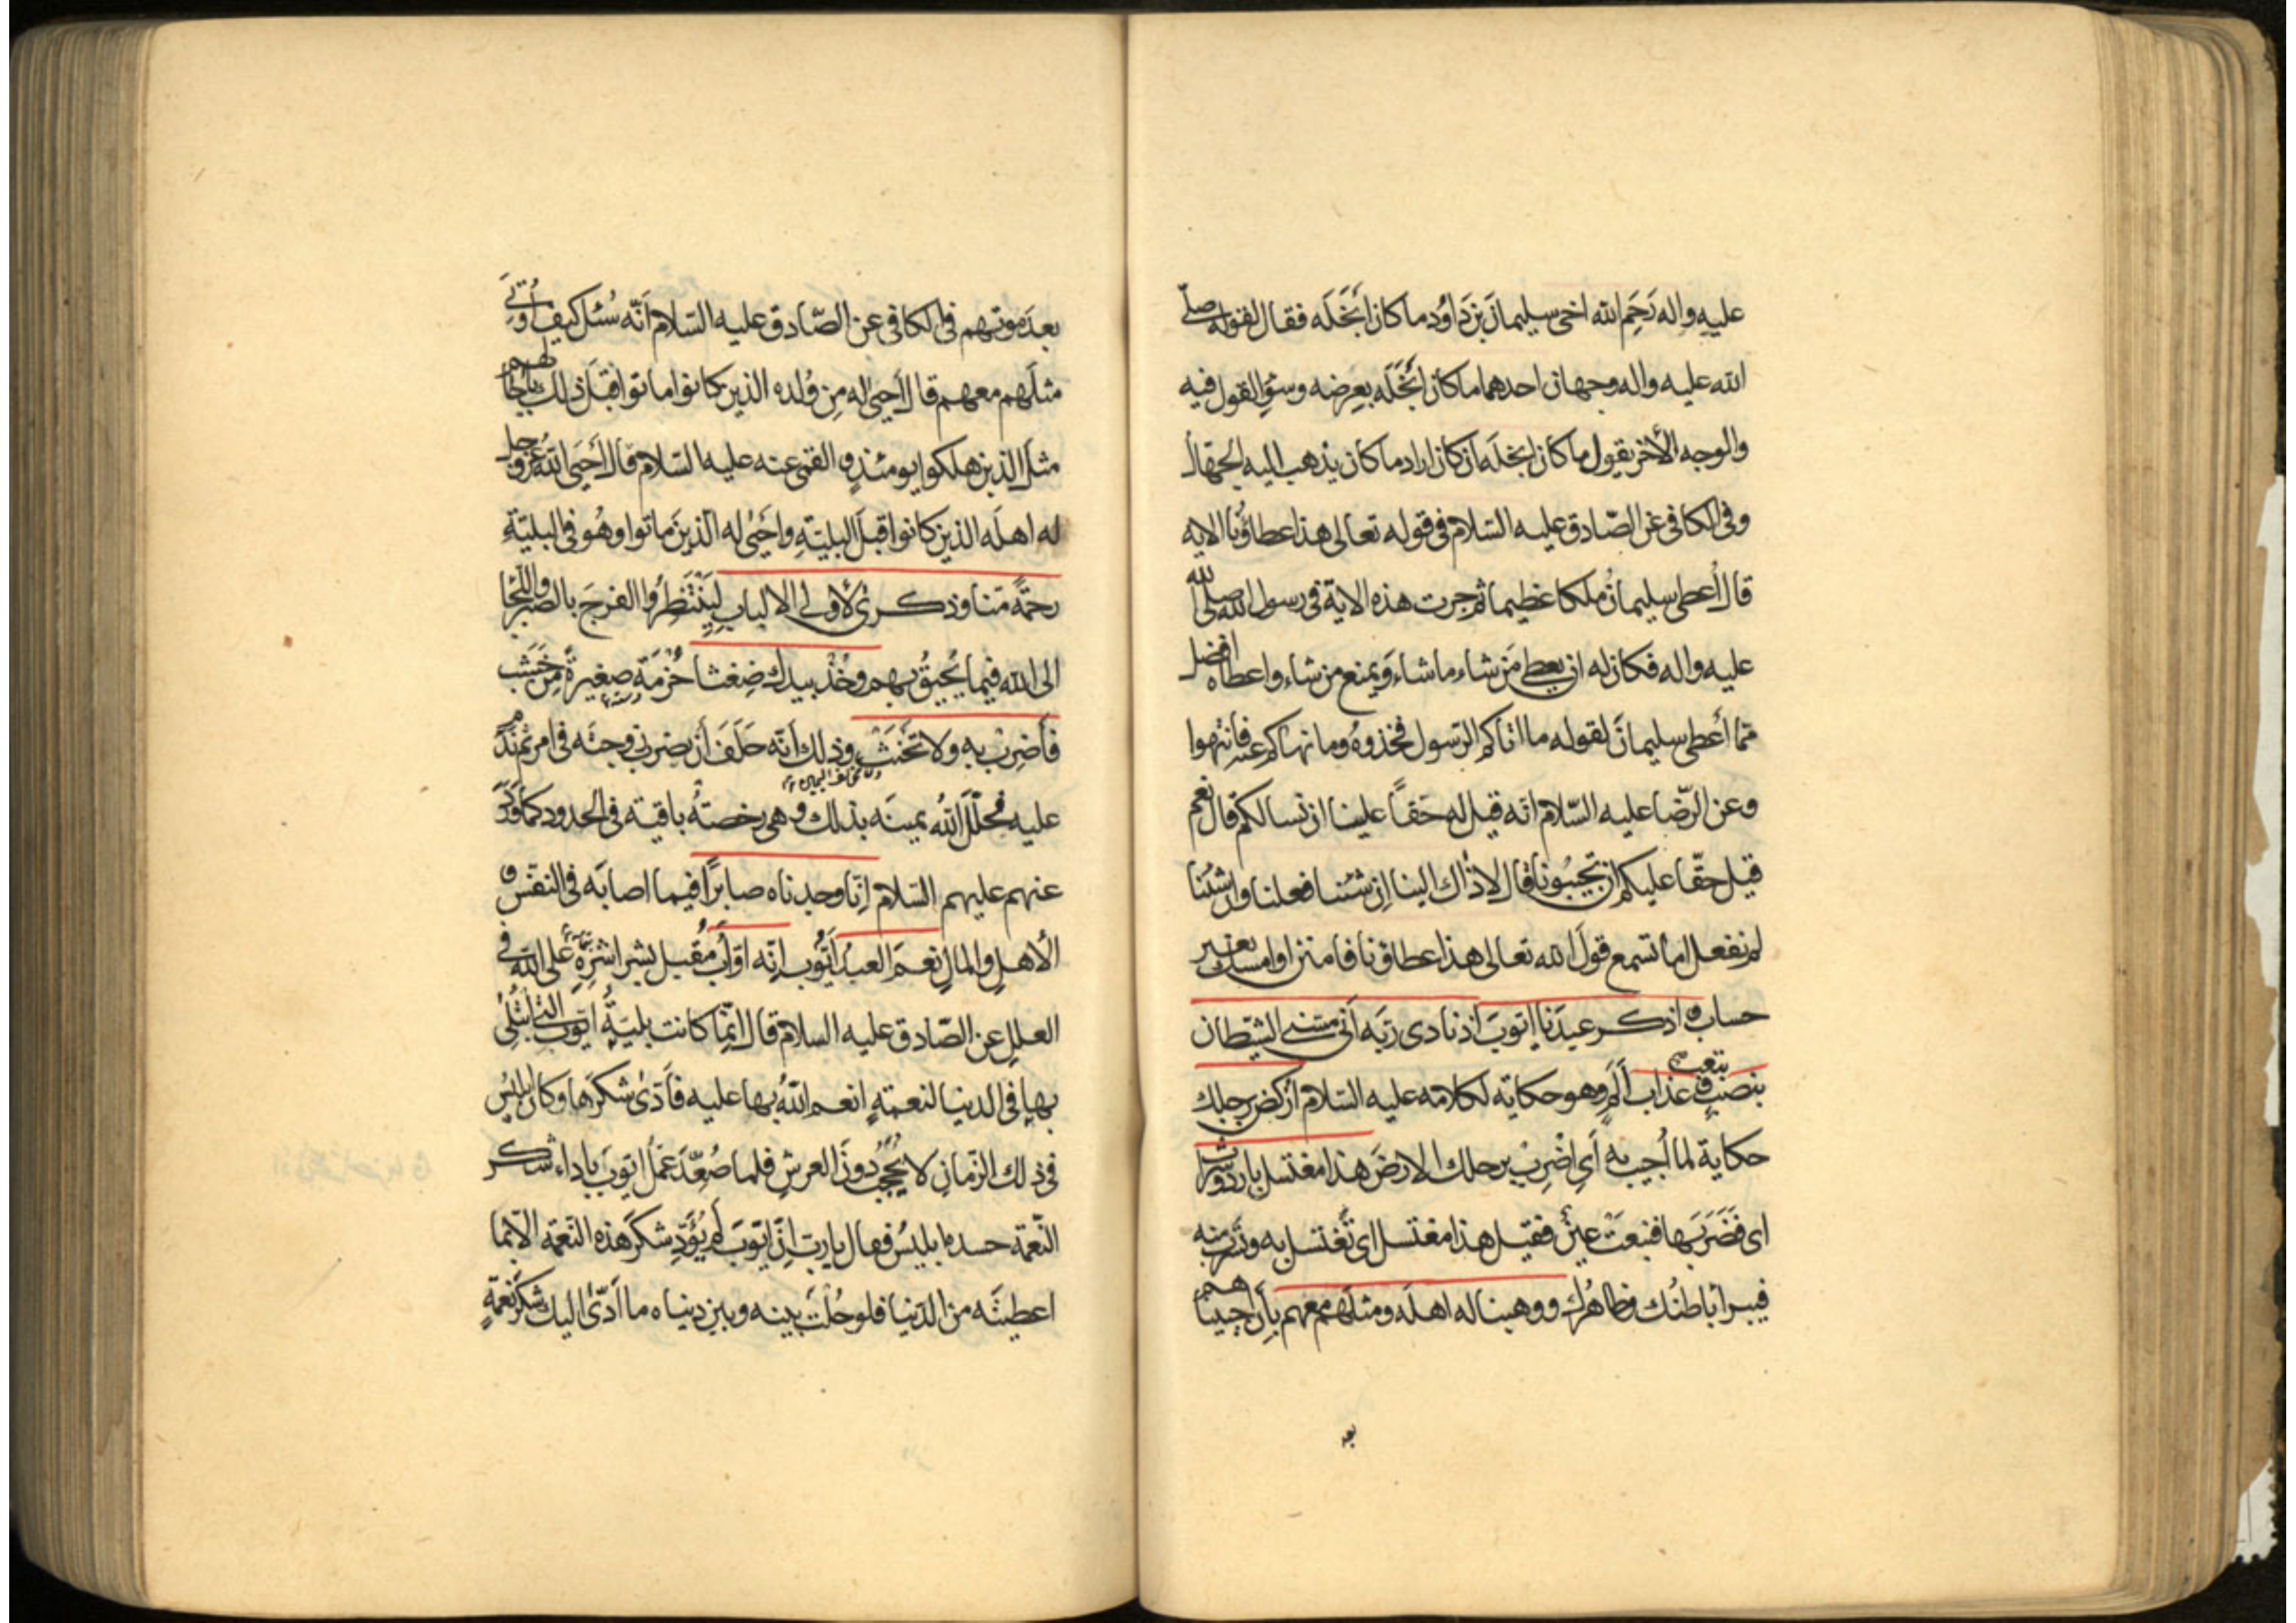 عليه واله رَحِمَ الله اخى سليمانَ بنَ دَاوُد ما كان اَبْخَلَه فقال لقوله صلّى
الله عليه واله وجهان احدهما ما كان اَبْخَلَه بعِرضه وسوءِ القول فيه
والوجه الأخر يقول ما كان ابخلَه ان كان اراد ما كان يذهب اليه الجهّال
وفى الكافى عن الصّادق عليه السّلام فى قوله تعالى هذا عطاؤُنا الايه
قال اُعطى سليمانُ ملكا عظيما ثم جرت هذه الاية فى رسول الله صلى الله
عليه واله فكان له ان يعطى مَن شاء ما شاء وَيمنع من شاء واعطاه افضل
ممّا أعطى سليمانَ لقوله ما اتاكم الرّسول فخذوهُ وما نهاكم عنه فانتهوا
وعن الرّضا عليه السّلام انّه قيل له حَقاً علينا ان نسالكم قال نعم
قيل حقّا عليكم ان تجيبُونا قال لا ذاك الينا اِن شئنا فعلنا وان شئنا
لم نفعل اما تسمع قولَ الله تعالى هذا عطاؤنا فامنن او امسك بغير
حساب و اذكر عبدَنا ايّوبَ اذ نادى ربّه اَنّى مسّنى الشيّطان
بنصب بتعب وعذاب اَلَمٍ وهو حكاية لكلامه عليه السّلام اُركض برجلك
حكاية لما اُجيب به أَى اضْرِبْ برجلك الارضَ هذا مغتسل بارد وشراب
اى فَضَرَبَها فنبعَتْ عينٌ فقيل هذا مغتسل اى تَغتسل به وتشرب منه
فيبرأ باطنُك وظاهرُك ووهبنا له اهلَه ومثلَهم معهم بأن احييناهم
بعد
بعدَ موتهم فى الكافى عن الصّادق عليه السّلام اَنّه سُئل كيف اُوتى
مثلَهم معهم قال اَحيى له مِن وُلده الذين كانوا ماتوا قبلَ ذلك باٰجالهم
مثلَ الذين هلكوا يومئذٍ و القمى عنه عليه السّلام قال اَحيَى اللهُ عزّوجل
له اهلَه الذين كانوا قبلَ البليّةِ واَحيَى له الّذينَ ماتوا وهُو فى البليّةِ
رحمةً منّا وذكرىٰ لأولى الالباب لِيَنْتَظِرُوا الفرجَ بالصّبر واللّجا
الى الله فيما يُحيقُ بهم وخُذْ بيدك ضِغثا حُزمَةً صغيرةً مِن خَشَب
فاَضِربْ به ولا تَحنَثْ وذلك اَنّه حَلَفَ أن يضرب زوجتَه فى امر ثم نَدِمَ
عليه فحَلّلَ اللهُ يمينَه بذلك و هى رخصتهٌ باقية فى الحدود كما وَرَدَ
عنهم عليهم السّلام اِنّا وجدناه صابرًا فيما اصابَه فى النفس و
الأهلِ والمالِ نِعمَ العبدُ اَيّوُب انّه اوّابٌ مُقبل بشراشِرِهِ على الله فى
العلل عن الصّادق عليه السلام قال انّما كانت بليّةُ ايّوب التى ابتُلىَ
بها فى الدنيا لنعمةٍ انعم اللهُ بها عليه فَاَدّىٰ شكرَها وكان ابليسُ
فى ذلك الزّمانِ لا يُحجَبُ دونَ العرشِ فلما صُعِّدَ عَمَلُ ايّوبَ باداء شكر
النّعمة حسده ابليسُ فقال يا ربّ انّ ايّوبَ لَم يُؤَدِّ شكرَ هذه النّعمة الّا بما
اعطيتَه من الدّنيا فلو حُلْتَ بينه وبين دنياه ما اَدّىٰ اليك شكرَ نعمةٍ